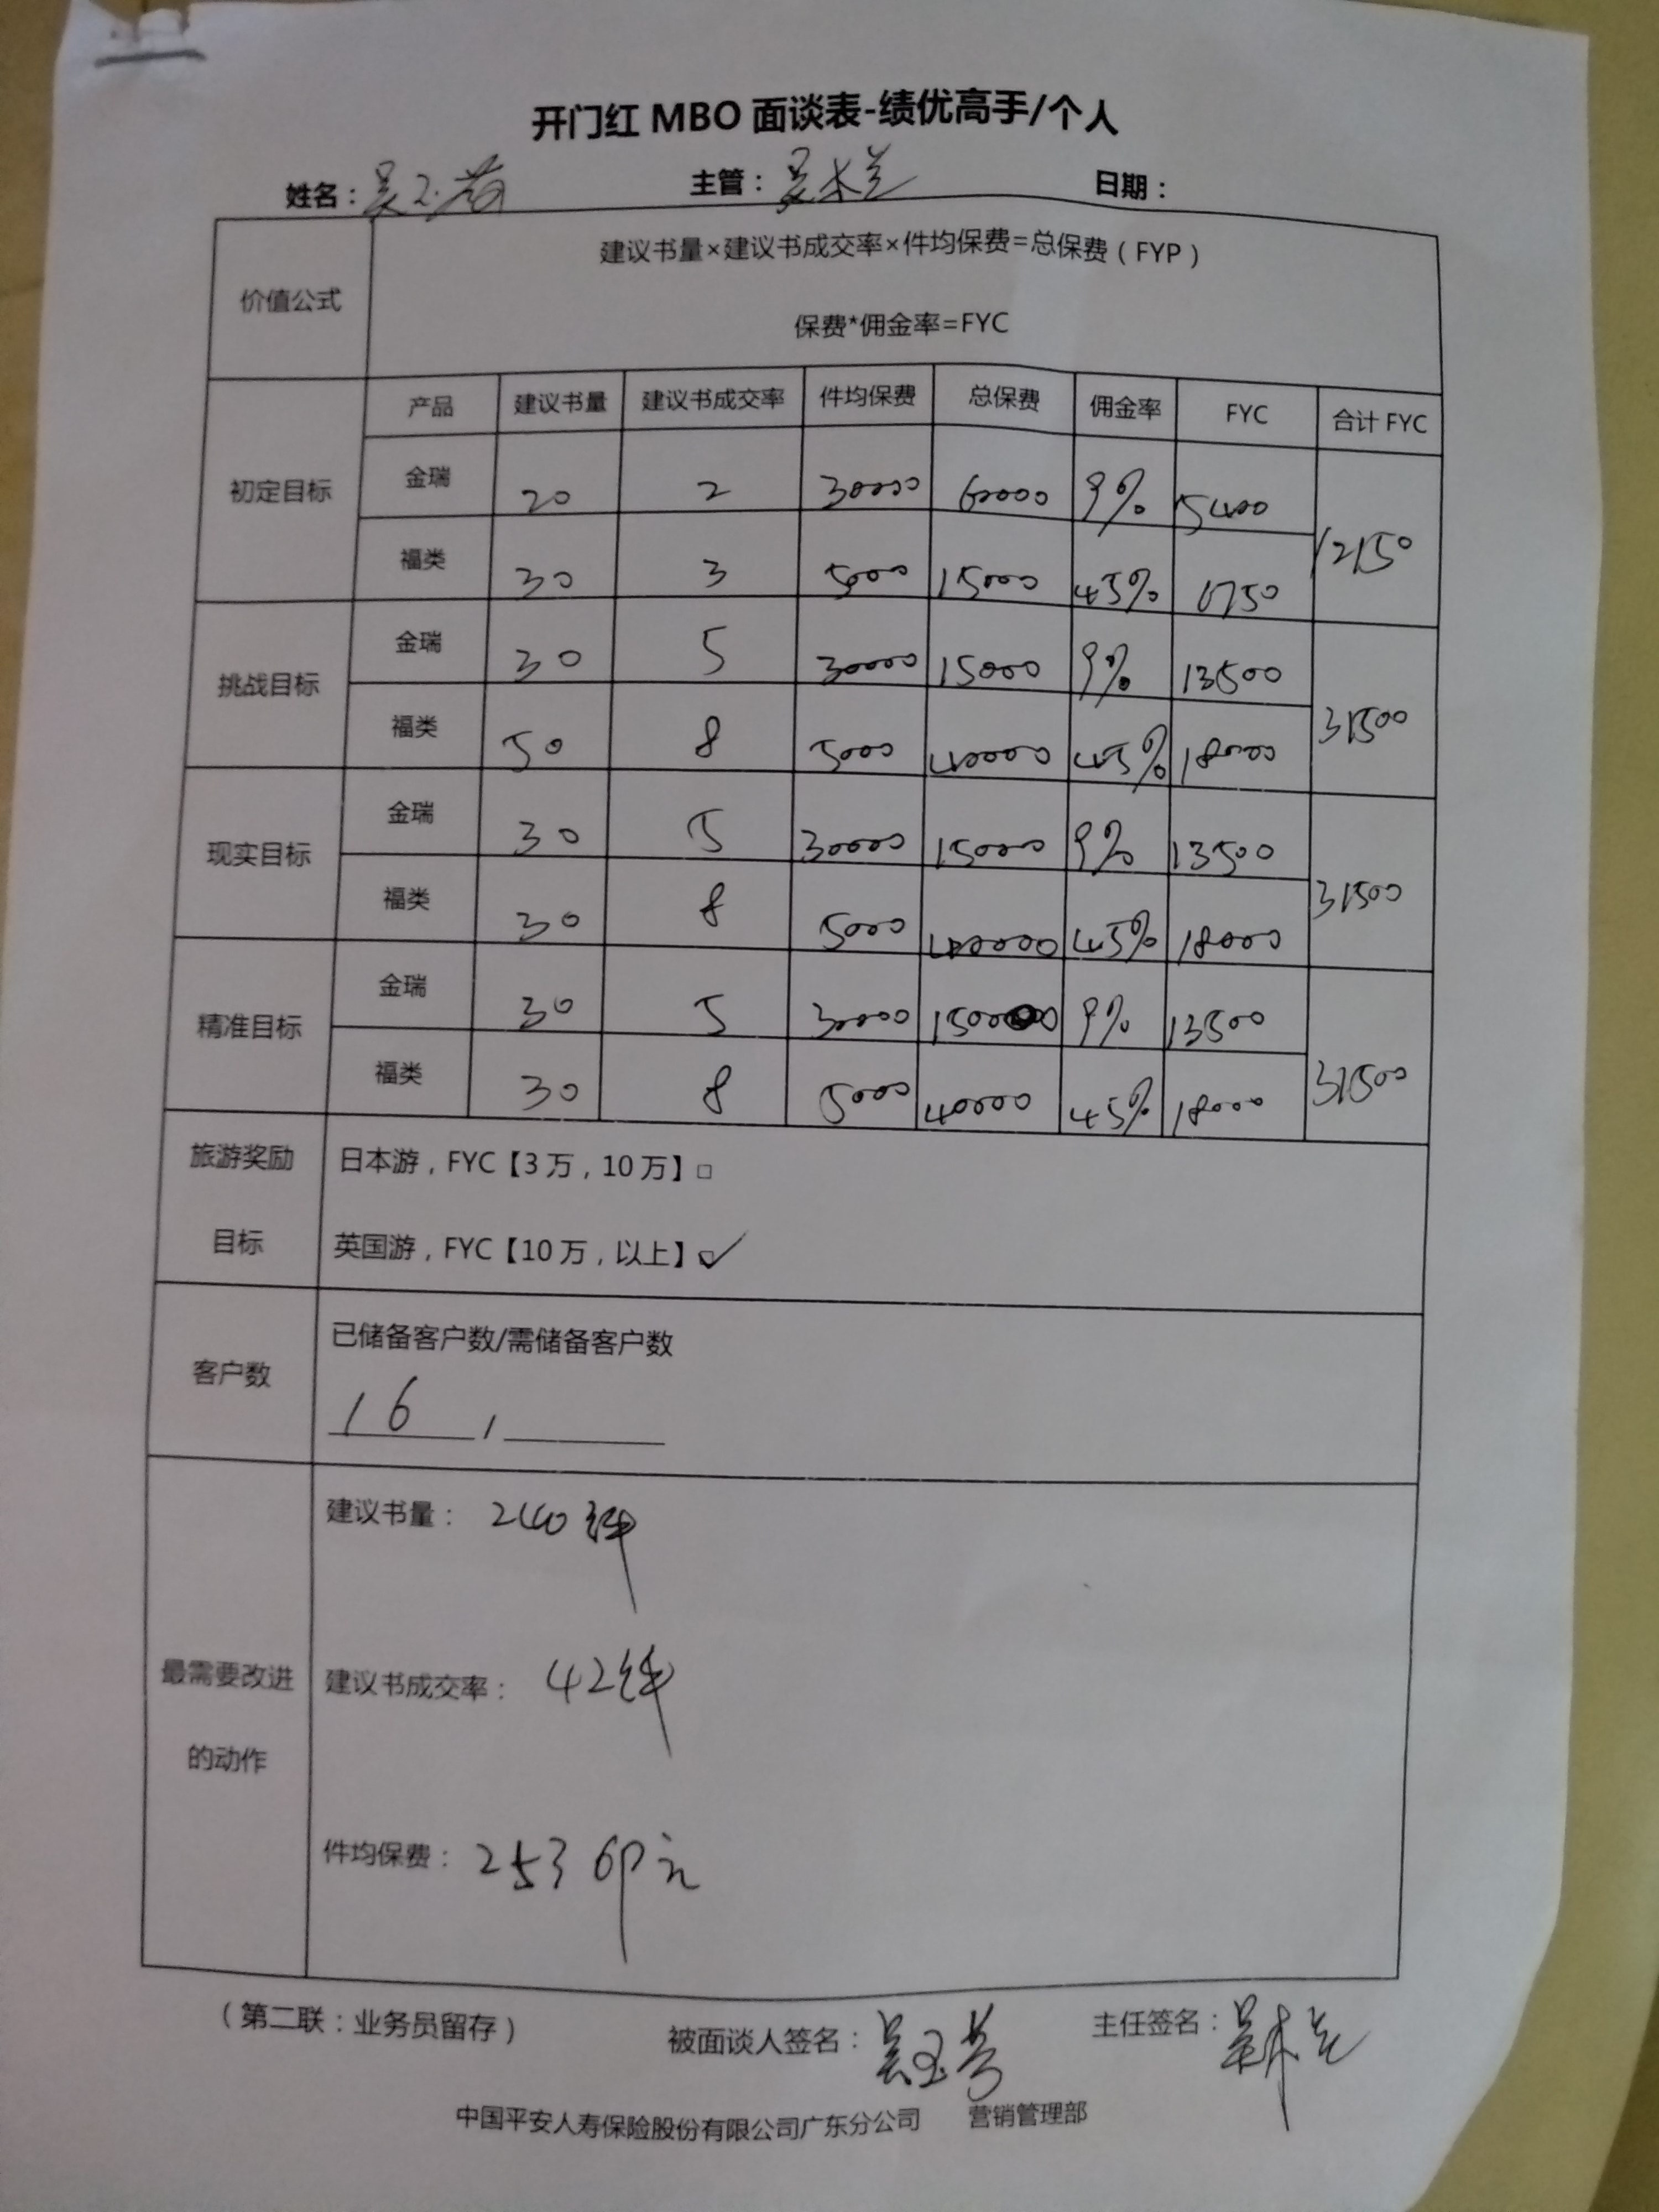 开门红 MBO 面谈表-绩优高手/个人
姓名：吴玉 主管：吴木兰 日期：
价值公式
建议书量×建议书成交率×件均保费=总保费（FYP）
保费*佣金率=FYC
产品 建议书量 建议书成交率 件均保费 总保费 佣金率 FYC 合计 FYC
初定目标
金瑞 20 2 30000 60000 9% 5400
12150
福类 30 3 5000 15000 45% 6750
挑战目标
金瑞 30 5 30000 15000 9% 13500
31500
福类 50 8 5000 40000 45% 18000
现实目标
金瑞 30 5 30000 15000 9% 13500
31500
福类 30 8 5000 40000 45% 18000
精准目标
金瑞 30 5 30000 150000 9% 13500
31500
福类 30 8 5000 40000 45% 18000
旅游奖励
目标
日本游，FYC【3 万，10 万】□
英国游，FYC【10 万，以上】☑
客户数
已储备客户数/需储备客户数
16 /
最需要改进
的动作
建议书量： 240件
建议书成交率： 42件
件均保费： 25369元
（第二联：业务员留存） 被面谈人签名：吴玉 主任签名：吴木兰
中国平安人寿保险股份有限公司广东分公司 营销管理部